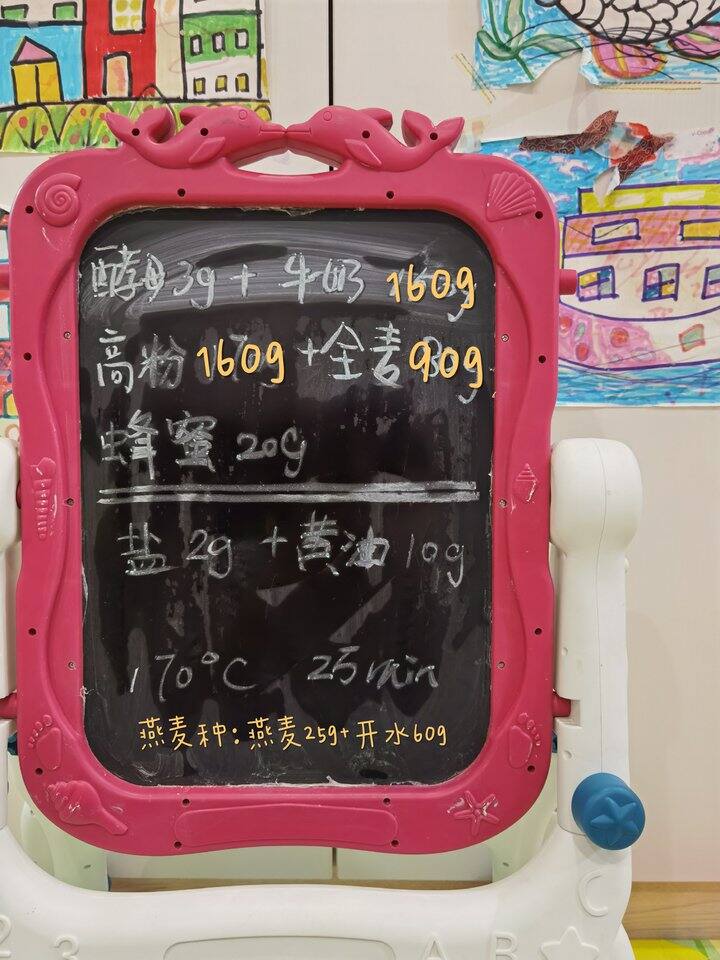 酵母3g + 牛奶 160g
高粉 160g + 全麦 90g
蜂蜜 20g
盐 2g + 黄油 10g
170°C 25min
燕麦种: 燕麦25g+开水60g
2 3 A B C